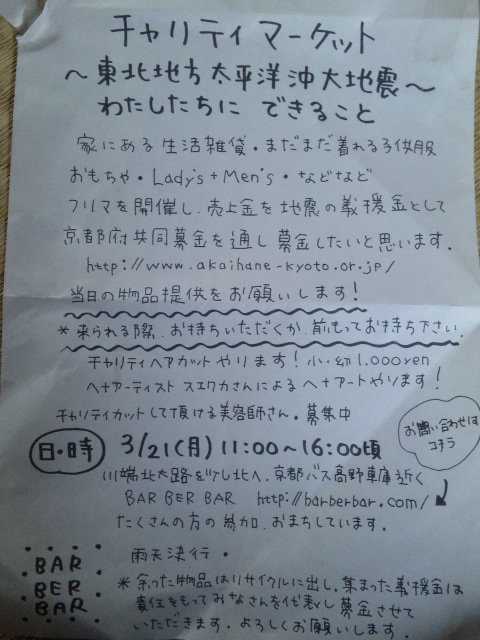 チャリティ マーケット
～東北地方太平洋沖大地震～
わたしたちに できること
家にある生活雑貨・まだまだ着れる子供服
おもちゃ・Lady's+Men's・などなど
フリマを開催し、売上金を地震の義援金として
京都府共同募金を通し募金したいと思います.
http://www.akaihane-kyoto.or.jp/
当日の物品提供をお願いします！
*来られる際、お持ちいただくか、前もってお持ち下さい.
チャリティヘアカットやります！小・幼1.000yen
ヘナアーティスト スエワカさんによるヘナアートやります！
チャリティカットして頂ける美容師さん。募集中
お問い合わせは
コチラ
日・時 3/21(月) 11:00～16:00頃
川端北大路を少し北へ、京都バス高野車庫近く
BAR BER BAR http://barberbar.com/
たくさんの方の参加、おまちしています.
雨天決行・
*余った物品はリサイクルに出し、集まった義援金は
責任をもってみなさんを代表し募金させて
いただきます。よろしくお願いします.
BAR
BER
BAR